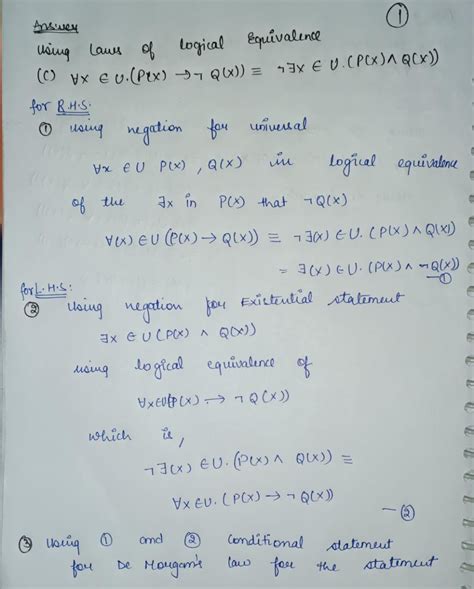 ①
Answer
Using Laws of logical Equivalence
(c) ∀x ∈ U.(P(x) → ¬ Q(x)) ≡ ¬∃x ∈ U.(P(x) ∧ Q(x))
for R.H.S:
① Using negation for universal
∀x ∈ U P(x), Q(x) in logical equivalence
of the ∃x in P(x) that ¬Q(x)
∀(x) ∈ U (P(x) → Q(x)) ≡ ¬∃(x) ∈ U. (P(x) ∧ Q(x))
= ∃(x) ∈ U. (P(x) ∧ ¬Q(x))
—①
for L.H.S:
② Using negation for Existential statement
∃x ∈ U (P(x) ∧ Q(x))
using logical equivalence of
∀x∈U(P(x) → ¬ Q(x))
which is,
¬∃(x) ∈ U. (P(x) ∧ Q(x)) ≡
∀x ∈ U. (P(x) → ¬ Q(x))
—②
③ Using ① and ② conditional statement
for De Morgan's law for the statement